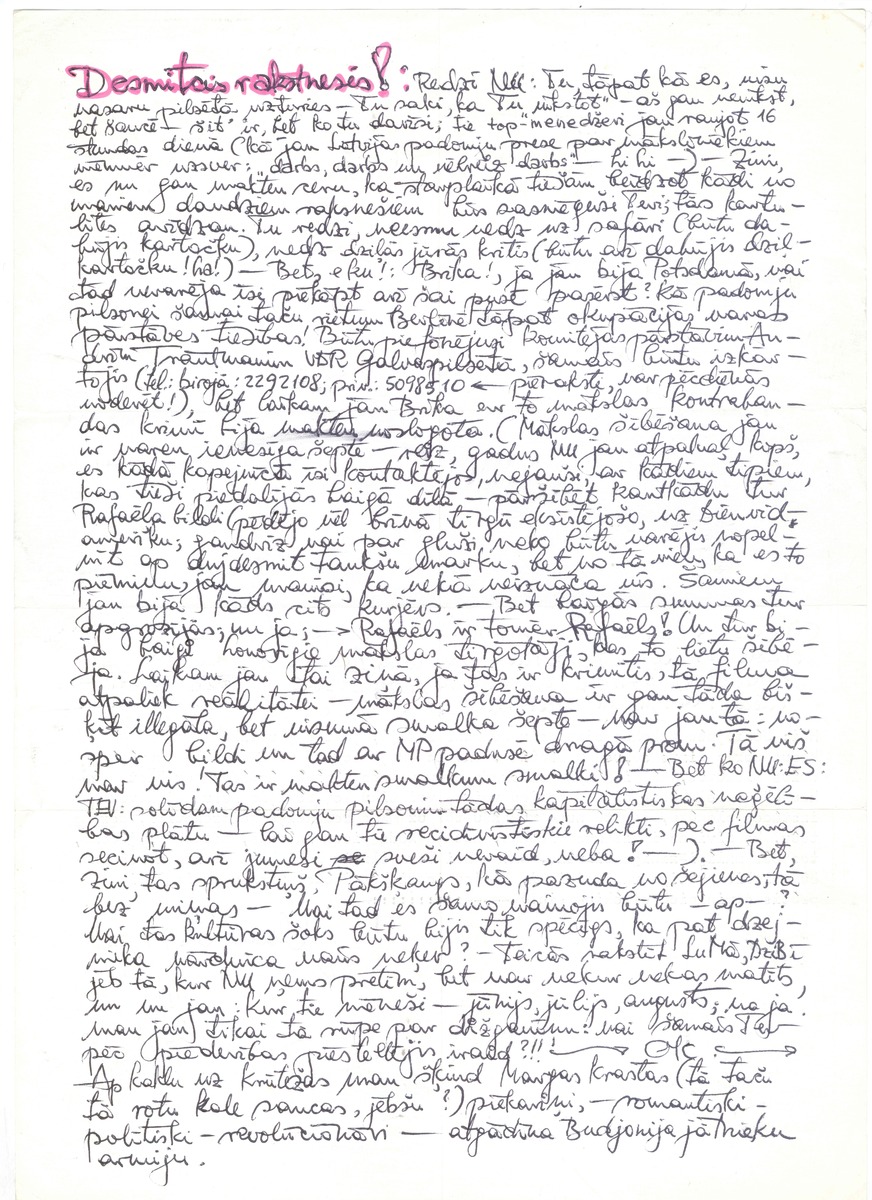 Desmitais rakstnesis!: Redzi NU: Tu, tāpat kā es, visu
vasaru pilsētā uzturies – Tu saki, ka Tu nīkstot – aš gan neīkst,
bet šaucē – šit' ir, bet ko tu darīsi; tie top-menedžeri jau raujot 16
stundas dienā (kā jau Latvijas padomju prese par māksliniekiem
vienmēr uzsver: "darbs, darbs un vēlreiz darbs" – hi hi –) – Zini,
es nu gan makten ceru, ka starplaikā tiešām beidzot kādi no
maniem daudziem raksnešiem būs sasnieguši Tevi; tās kartu-
lītes arīdzan. Tu redzi, neesmu nedz uz safāri (būtu da-
būjis kartočku), nedz dziļās jūrās kritis (būtu arī dabūjis dzil-
kartočku! ha!) – Bet, eku!: Brika!, ja jau bija Potsdamā, vai
tad nevarēja īsi piekāpt arī šai pusē pačērst? Kā padomju
pilsonei šamai taču rietumu Berlīnē tāpat okupācijas varas
pārstāves tiesības! Būtu piefonējusi komitejas pārstāvim An-
drim Trautmanim VDR Galvaspilsētā, šamais būtu izkār-
tojis (tel.: birojā: 2292108; priv.: 5098510 ← pieraksti, var pēcdienās
noderēt!), bet laikam jau Brika ar to mākslas kontraban-
das krimi bija makten noslogota. (Mākslas šibēšana jau
ir varen ienesīga šepte – redz, gadus NU jau atpakaļ kopš,
es kādā kopejnīcā īsi kontaktējos, nejauši, ar kādiem tipiem,
kas tieši piedalījās baigā dīlā – pāršibēt kautkādu tur
Rafaēla bildi (pēdējo vēl brīvā tirgū eksistējošo, uz Dienvid-
ameriku; gandrīz vai par gluši neko būtu varējis nopel-
nīt ap divdesmit taukšu marku, bet no tā vien, ka es to
pieminu, jau manāi, ka nekā neiznāca vis. Šamiem
jau bija kāds cits kurjers. – Bet kārgās summas tur
apgrozījās; nu ja; → Rafaēls ir tomēr Rafaēls! Un tur bi-
ja baigi honorīgie mākslas tirgotāji, kas to lietu šibē-
ja. Laikam jau tai ziņā, ja tas ir krimītis, tā filma
atpaliek reālitātei – mākslas šibēšana ir gan tāda biš-
ķīt illegāla, bet visumā smalka šepte – nav jau tā: no-
sper bildi un tad ar MP padusē draugā prom. Tā viš
nav vis! Tas ir makten smalkum smalki! – Bet ko NU: ES:
TEV: solīdam padomju pilsonim tādas kapitālistiskas neģēlī-
bas plātu – lai gan tie recidīvistiskie relikti, pēc filmas
secinot, arī jumeši sveši nevaid, neba? –). – Bet,
zini, tas sprukstiņš, Pākškangs, kā pazuda no šejienes, tā
bez miņas – Vai tad es šamo vainojis būtu – ap–?
Vai tas kultūras šoks būtu bijis tik spēcīgs, ka pat dzej-
nieka nārdnīca vairs neķer? – Teicās rakstīt LuMā, DzBī
jeb tā, kur NU ņems pretīm, bet nav nekur nekas matīts,
un nu jau: kur tie mēneši – jūnijs, jūlijs, augusts; nu ja,
man jau tikai tā rūpe par dižgarumu: vai šamais Tev
pēc piederības piestellējis ivaid?!!! ⟶ OK ⟶
Ap kaklu uz krūtežas man šķind Margas Krastas (tā taču
tā rotu kale saucas, jebšu?) piekariņi, – romantiski-
politiski-revolūcionāri – atgādina Budjonija jātnieku
armiju.